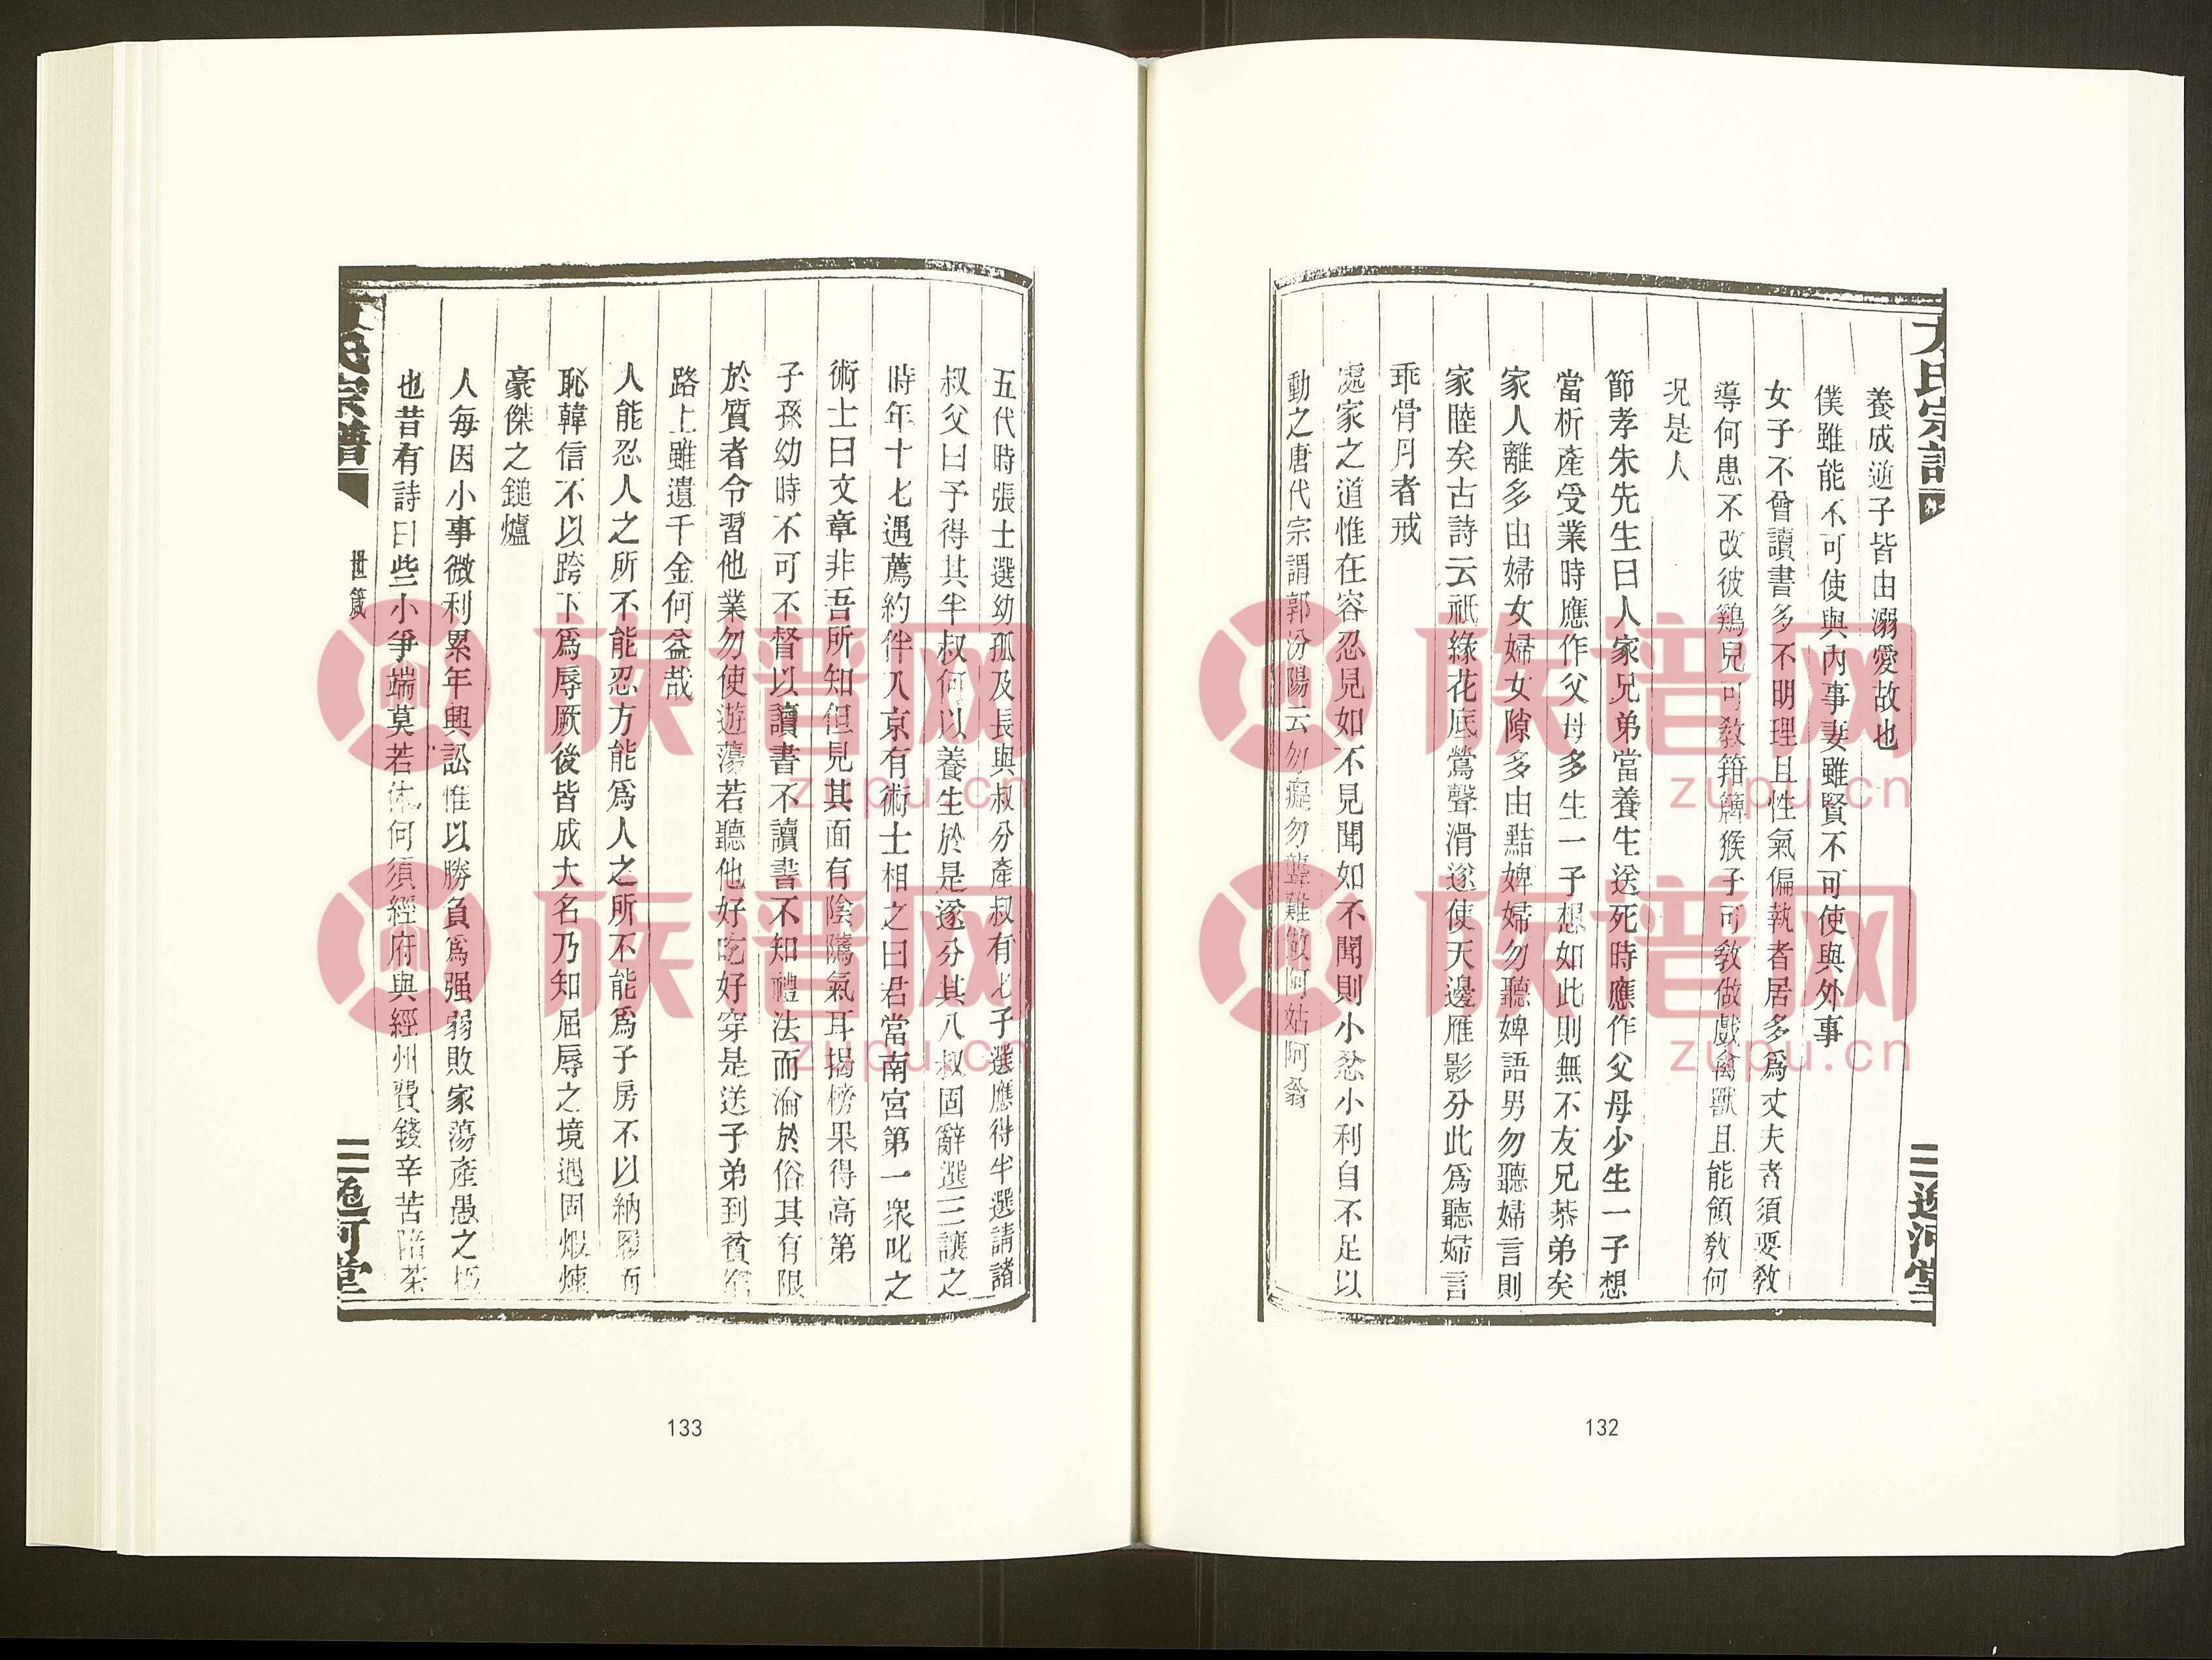 養成逆子皆由溺愛故也
僕雖能不可使與內事妻雖賢不可使與外事
女子不曾讀書多不明理且性氣偏執者居多爲丈夫者須要教
導何患不改彼鷄兒可教籍籬猴子可教做戲禽獸且能領教何
况是人
節孝朱先生曰人家兄弟當養生送死時應作父母少生一子想
當析產受業時應作父母多生一子想如此則無不友兄恭弟矣
家人離多由婦女婦女隙多由黠婢婦勿聽婢語男勿聽婦言則
家睦矣古詩云祇緣花底鶯聲滑遂使天邊雁影分此爲聽婦言
乖骨月者戒
處家之道惟在容忍見如不見聞如不聞則小忿小利自不足以
動之唐代宗謂郭汾陽云勿癡勿聾難做阿姑阿翁
氏宗譜
三
逸河堂
132
五代時張士選幼孤及長與叔分產叔有七子選應得半選請諸
叔父曰予得其半叔何以養生於是遂分其八叔固辭選三讓之
時年十七遇薦約伴入京有術士相之曰君當南宮第一衆叱之
術士曰文章非吾所知但見其面有陰隲氣耳揭榜果得高第
子孫幼時不可不督以讀書不讀書不知禮法而淪於俗其有限
於質者令習他業勿使遊蕩若聽他好吃好穿是送子弟到貧窮
路上雖遺千金何益哉
人能忍人之所不能忍方能爲人之所不能爲子房不以納履而
恥韓信不以跨下爲辱厥後皆成大名乃知屈辱之境遇固煅煉
豪傑之鎚爐
人每因小事微利累年興訟惟以勝負爲强弱敗家蕩產愚之極
也昔有詩曰些小爭端莫若休何須經府與經州費錢辛苦陪茶
氏宗譜
世箴
三
逸河堂
133
族谱网
zupu.cn
族谱网
zupu.cn
族谱网
zupu.cn
族谱网
zupu.cn